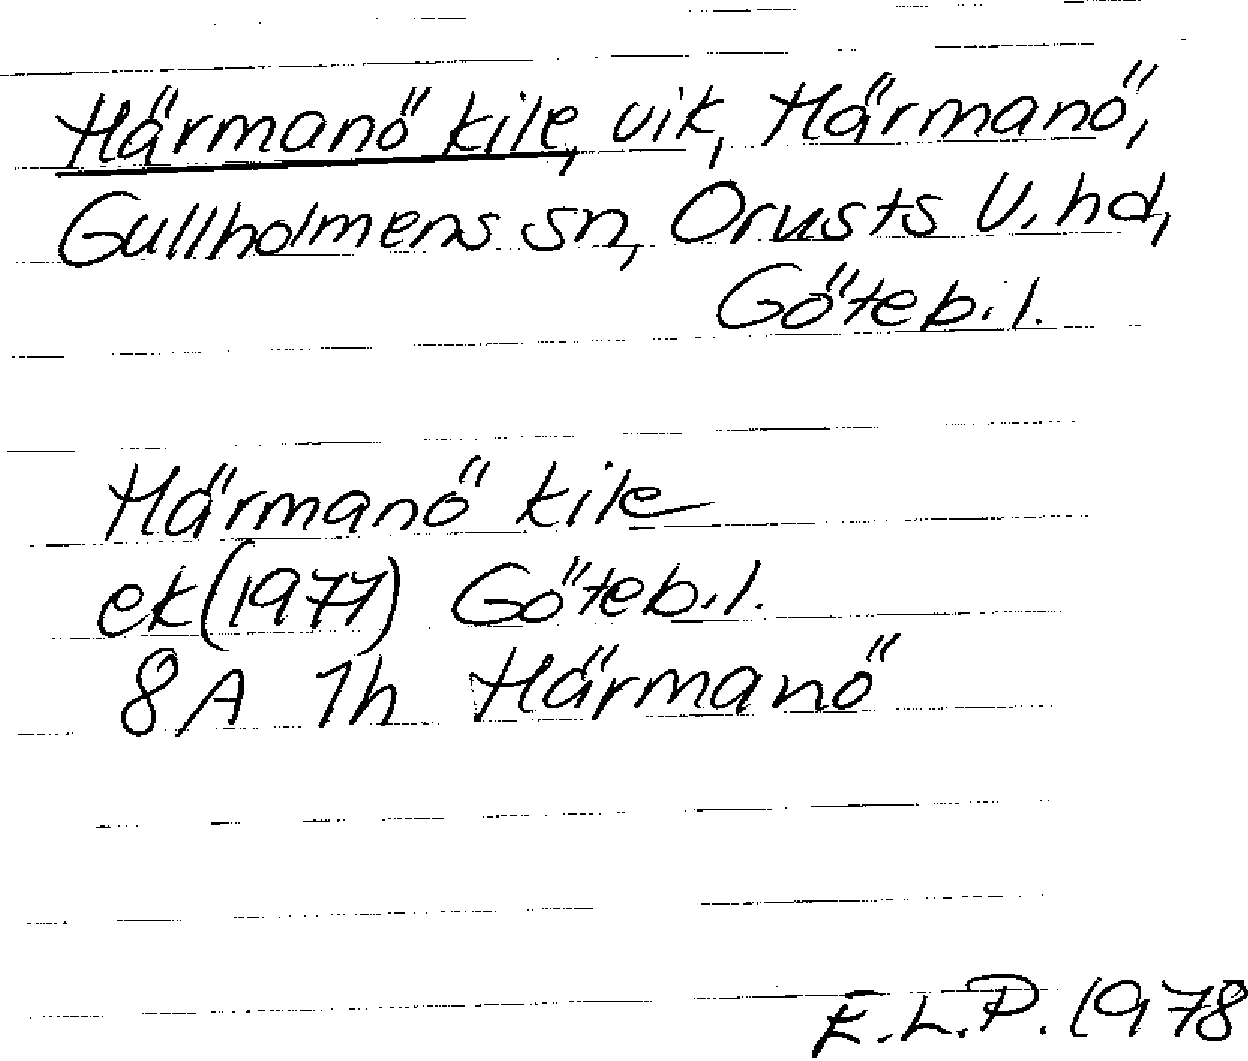 Härmanö kile, vik, Härmanö,
Gullholmens sn, Orusts V. hd,
Göteb. l.
Härmanö kile
ek (1977) Göteb. l.
8A 1h Härmanö
E.L.P. 1978